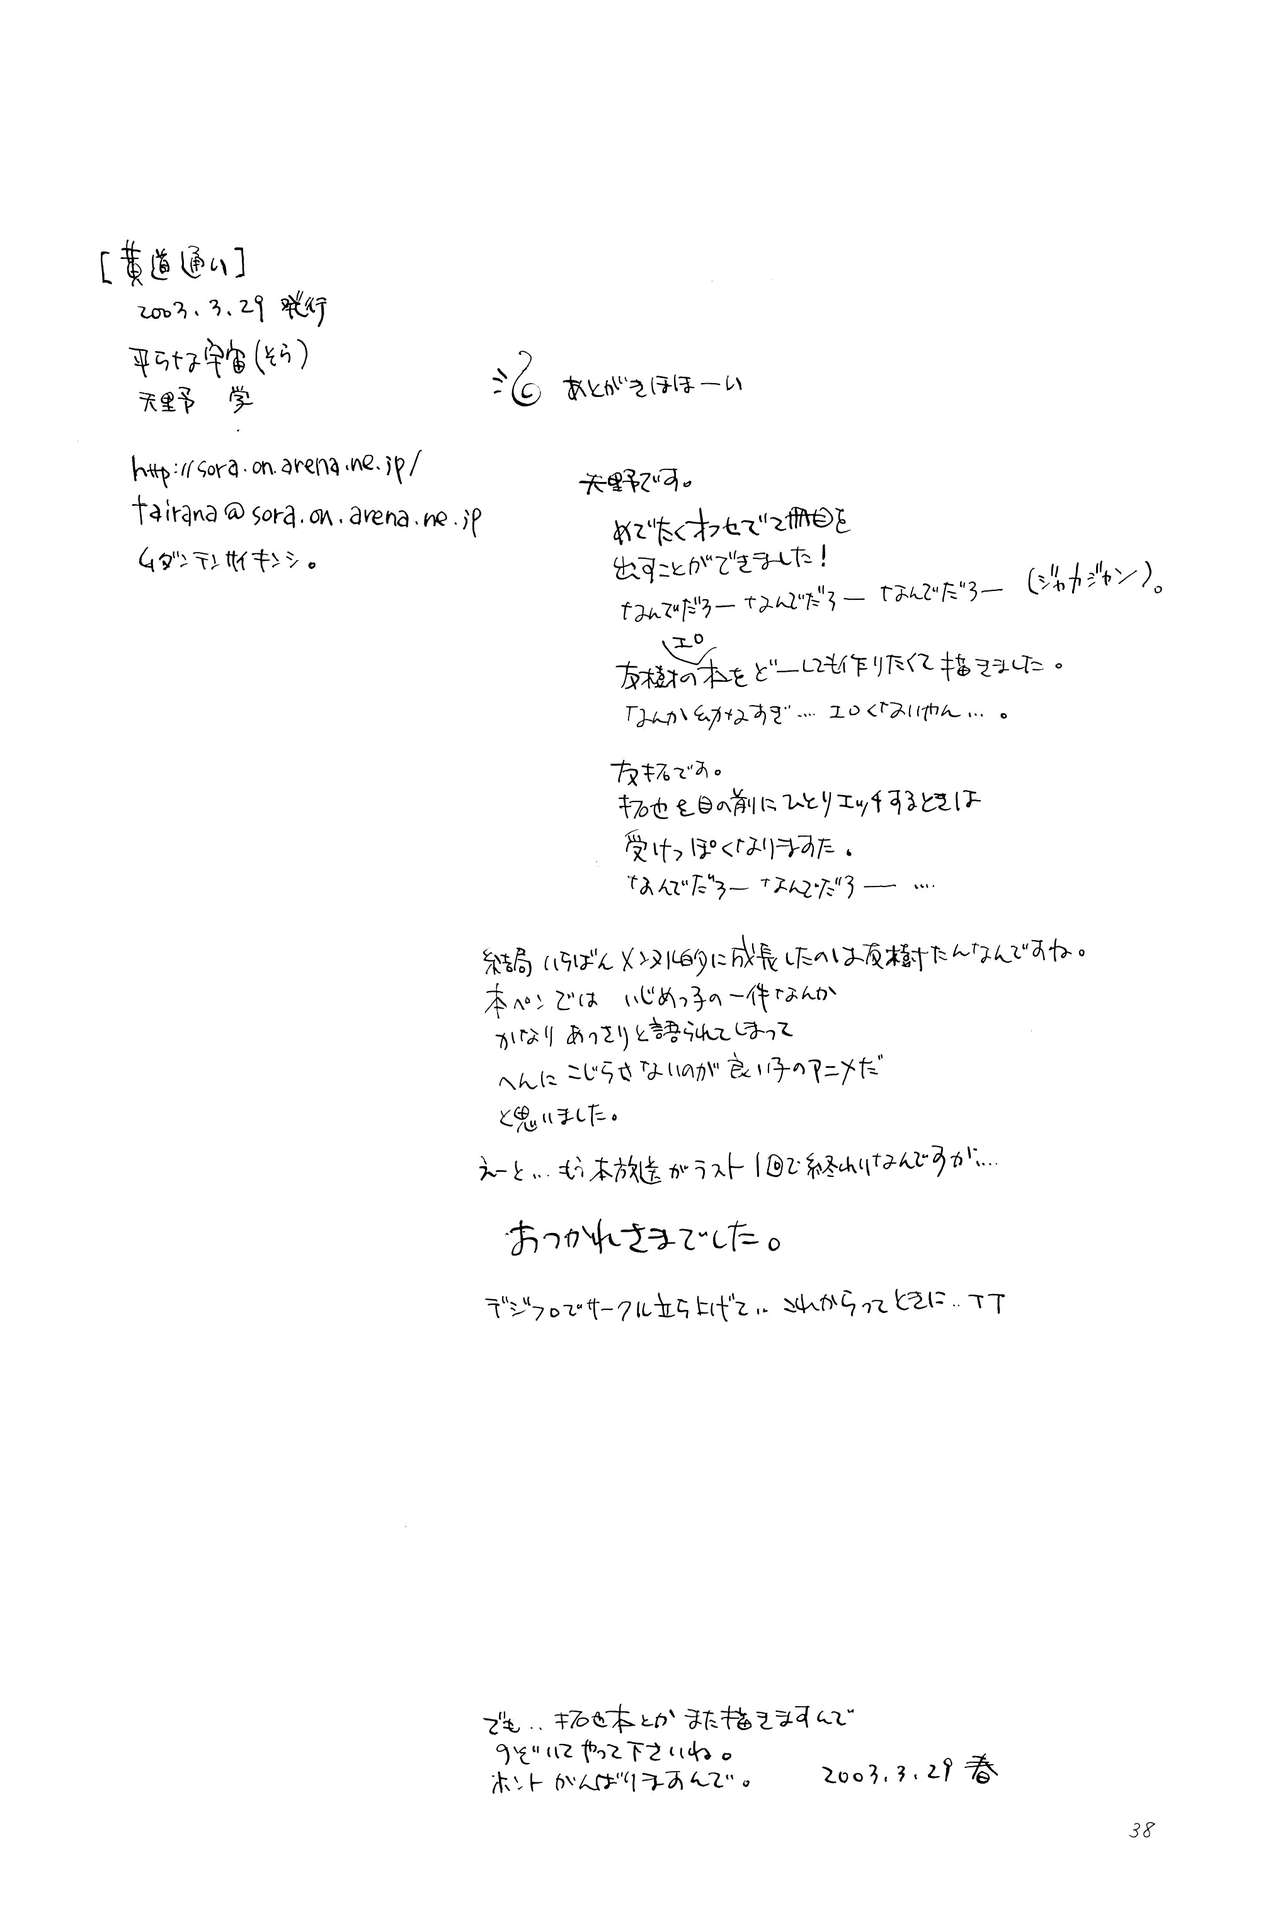 [黄道通い]
2003.3.29 発行
平らな宇宙(そら)
天野 学
http://sora.on.arena.ne.jp/
tairana@sora.on.arena.ne.jp
ムダンテンサイキンシ。
あとがきほほーい
天野です。
めでたくオフセで2冊目を
出すことができました!
なんでだろー なんでだろー なんでだろー (ジャカジャン)。
エロ
友樹の本をどーしても作りたくて描きました。
なんか幼なすぎ…. エロくないやん…。
友拓です。
拓也を目の前にひとりエッチするときは
受けっぽくなりますた。
なんでだろー なんでだろー ….
結局 いちばんメンタル的に成長したのは友樹たんなんですね。
本ペンでは いじめっ子の一件なんか
かなり あっさりと語られてしまって
へんに こじらさないのが良い子のアニメだ
と思いました。
えーと… もう本放送がラスト1回で終わりなんですが….
おつかれさまでした。
デジフロでサークル立ち上げて.. これからってときに.. TT
でも.. 拓也本とか また描きますんで
のぞいてやって下さいね。
ホント がんばりますんで。
2003.3.29 春
38